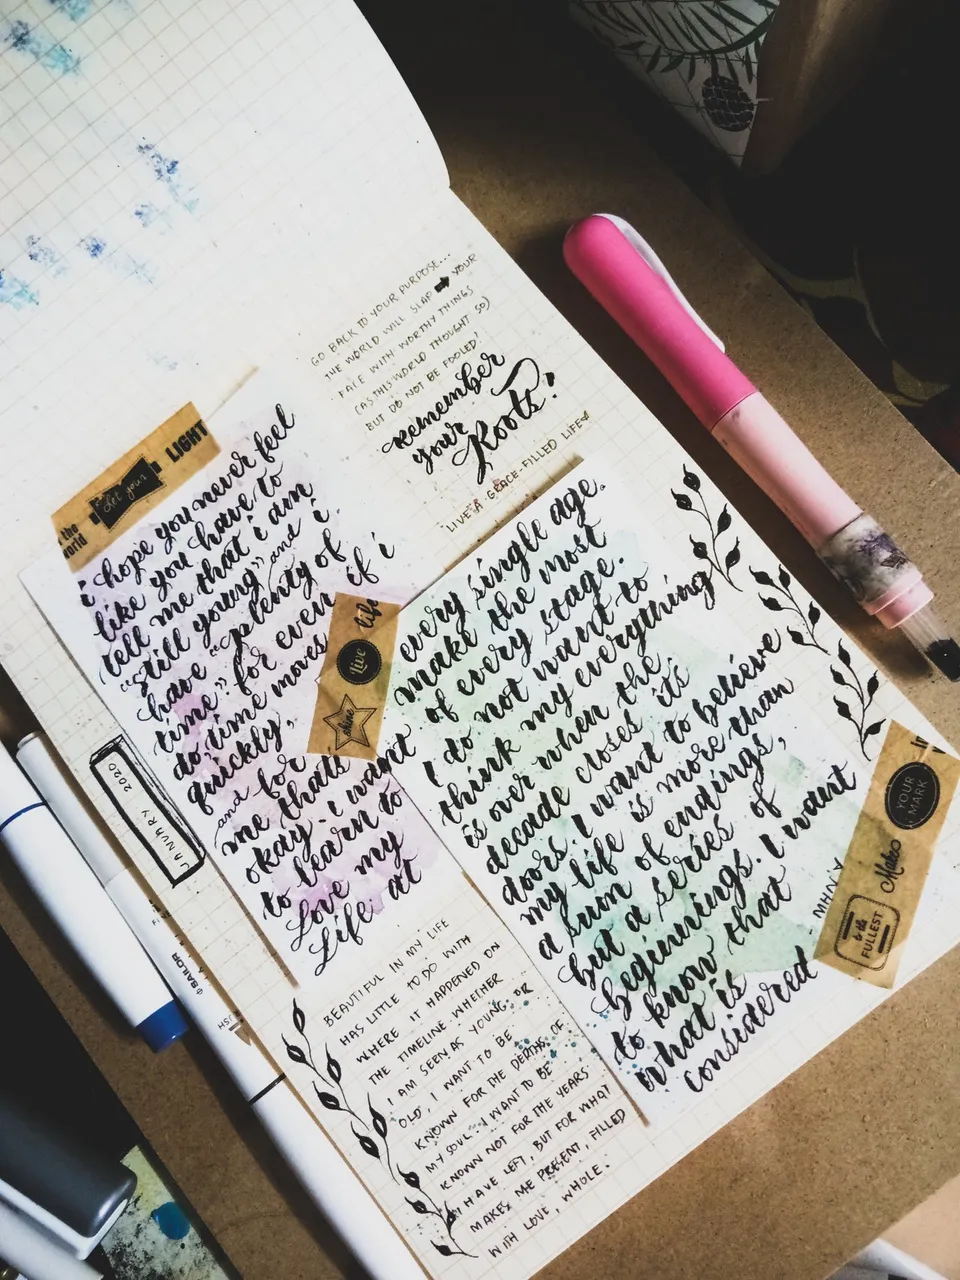 GO BACK TO YOUR PURPOSE...
THE WORLD WILL SLAP ➡ YOUR
FACE WITH WORTHY THINGS
(AS THIS WORLD THOUGHT SO)
BUT DO NOT BE FOOLED!
remember
your
Roots!
LIVE A GRACE-FILLED LIFE
the
world
let your
LIGHT
i hope you never feel
like you have to
tell me that i am
"still young" and i
have "plenty of
time". for even if i
do, time moves
quickly,
and for
me thats
okay. i want
to learn to
Love my
Life at
life
Live
shine
every single age.
make the most
of every stage.
I do not want to
think my everything
is over when the
decade closes its
doors. I want to believe
my life is more than
a sum of endings,
but a series of
beginnings. I want
to know that
what is
considered
JANUARY 2020
BEAUTIFUL IN MY LIFE
HAS LITTLE TO DO WITH
WHERE IT HAPPENED ON
THE TIMELINE WHETHER
I AM SEEN AS YOUNG OR
OLD, I WANT TO BE
KNOWN FOR THE DEPTHS OF
MY SOUL. I WANT TO BE
KNOWN NOT FOR THE YEARS
I HAVE LEFT, BUT FOR WHAT
MAKES ME PRESENT, FILLED
WITH LOVE, WHOLE.
MHN.Y
YOUR
MARK
Make
to the
FULLEST